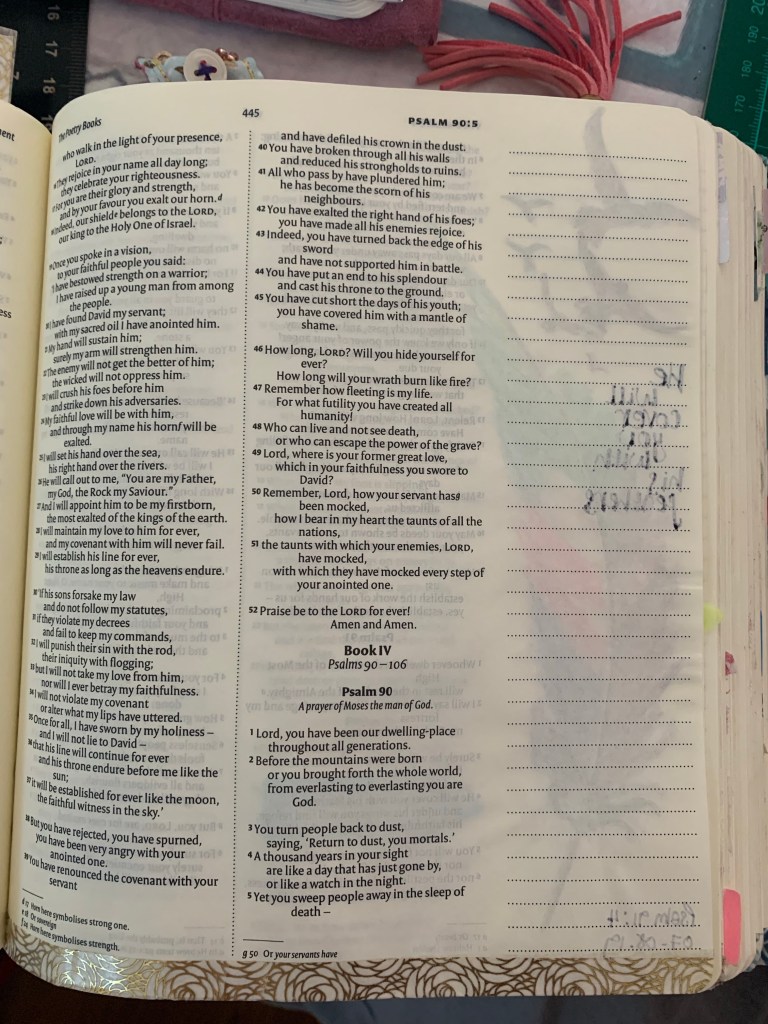 16
17
18
190
180
170
The Poetry Books
445
PSALM 90:5
who walk in the light of your presence,
LORD.
16 They rejoice in your name all day long;
they celebrate your righteousness.
17 For you are their glory and strength,
and by your favour you exalt our horn.d
18 Indeed, our shielde belongs to the LORD,
our king to the Holy One of Israel.
19 Once you spoke in a vision,
to your faithful people you said:
'I have bestowed strength on a warrior;
I have raised up a young man from among
the people.
20 I have found David my servant;
with my sacred oil I have anointed him.
21 My hand will sustain him;
surely my arm will strengthen him.
22 The enemy will not get the better of him;
the wicked will not oppress him.
23 I will crush his foes before him
and strike down his adversaries.
24 My faithful love will be with him,
and through my name his hornf will be
exalted.
25 I will set his hand over the sea,
his right hand over the rivers.
26 He will call out to me, "You are my Father,
my God, the Rock my Saviour."
27 And I will appoint him to be my firstborn,
the most exalted of the kings of the earth.
28 I will maintain my love to him for ever,
and my covenant with him will never fail.
29 I will establish his line for ever,
his throne as long as the heavens endure.
30 'If his sons forsake my law
and do not follow my statutes,
31 if they violate my decrees
and fail to keep my commands,
32 I will punish their sin with the rod,
their iniquity with flogging;
33 but I will not take my love from him,
nor will I ever betray my faithfulness.
34 I will not violate my covenant
or alter what my lips have uttered.
35 Once for all, I have sworn by my holiness –
and I will not lie to David –
36 that his line will continue for ever
and his throne endure before me like the
sun;
37 it will be established for ever like the moon,
the faithful witness in the sky.'
38 But you have rejected, you have spurned,
you have been very angry with your
anointed one.
39 You have renounced the covenant with your
servant
d 17 Horn here symbolises strong one.
e 18 Or sovereign
f 24 Horn here symbolises strength.
and have defiled his crown in the dust.
40 You have broken through all his walls
and reduced his strongholds to ruins.
41 All who pass by have plundered him;
he has become the scorn of his
neighbours.
42 You have exalted the right hand of his foes;
you have made all his enemies rejoice.
43 Indeed, you have turned back the edge of his
sword
and have not supported him in battle.
44 You have put an end to his splendour
and cast his throne to the ground.
45 You have cut short the days of his youth;
you have covered him with a mantle of
shame.
46 How long, LORD? Will you hide yourself for
ever?
How long will your wrath burn like fire?
47 Remember how fleeting is my life.
For what futility you have created all
humanity!
48 Who can live and not see death,
or who can escape the power of the grave?
49 Lord, where is your former great love,
which in your faithfulness you swore to
David?
50 Remember, Lord, how your servant hasg
been mocked,
how I bear in my heart the taunts of all the
nations,
51 the taunts with which your enemies, LORD,
have mocked,
with which they have mocked every step of
your anointed one.
52 Praise be to the LORD for ever!
Amen and Amen.
Book IV
Psalms 90–106
Psalm 90
A prayer of Moses the man of God.
1 Lord, you have been our dwelling-place
throughout all generations.
2 Before the mountains were born
or you brought forth the whole world,
from everlasting to everlasting you are
God.
3 You turn people back to dust,
saying, 'Return to dust, you mortals.'
4 A thousand years in your sight
are like a day that has just gone by,
or like a watch in the night.
5 Yet you sweep people away in the sleep of
death –
g 50 Or your servants have
He
will
cover
you
with
his
feathers
Psalm 91:4